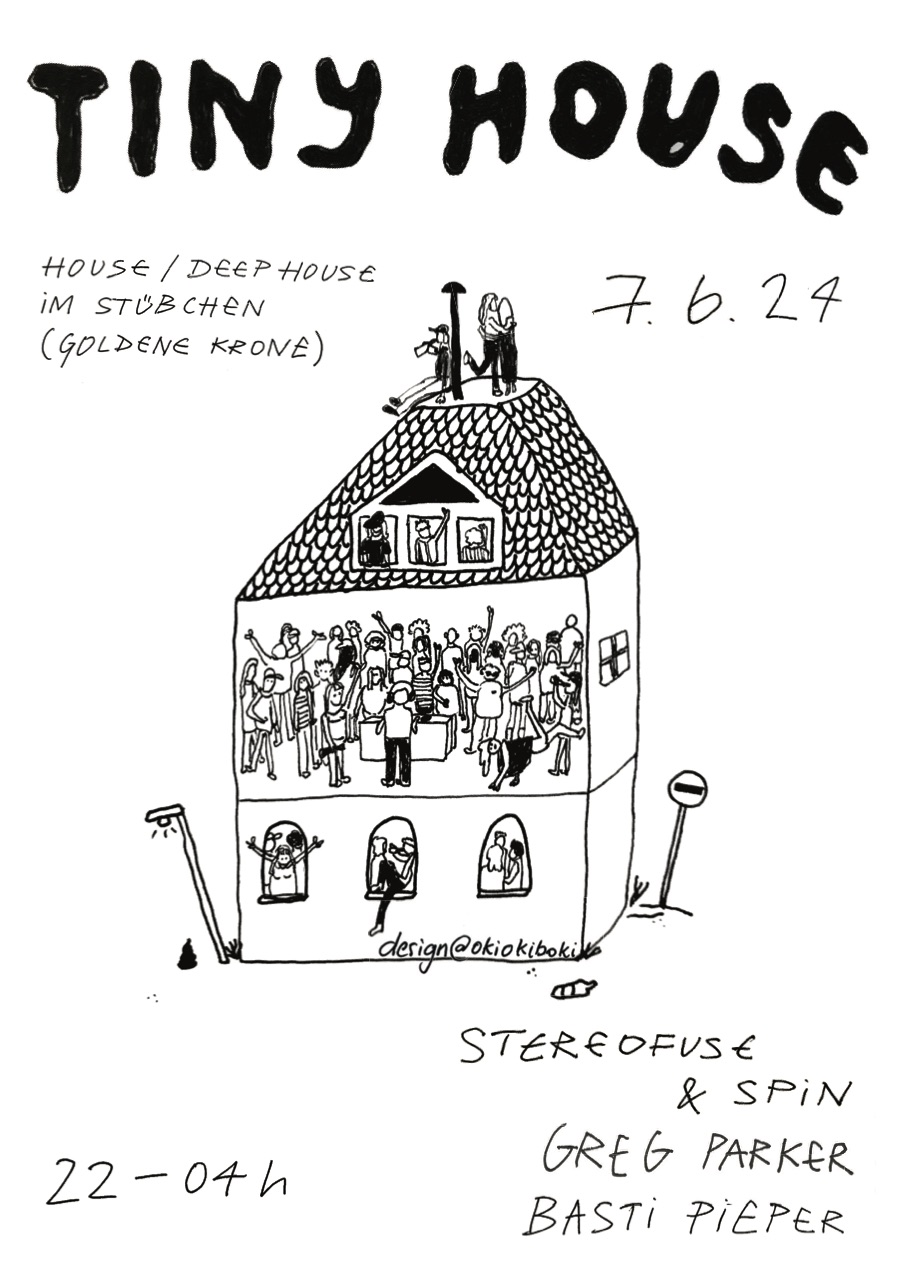 TINY HOUSE
HOUSE / DEEP HOUSE
iM STÜBCHEN
(GOLDENE KRONE)
7.6.24
design@okiokiboki
STEREOFUSE
& SPiN
GREG PARKER
BASTi PiEPER
22 – 04 h